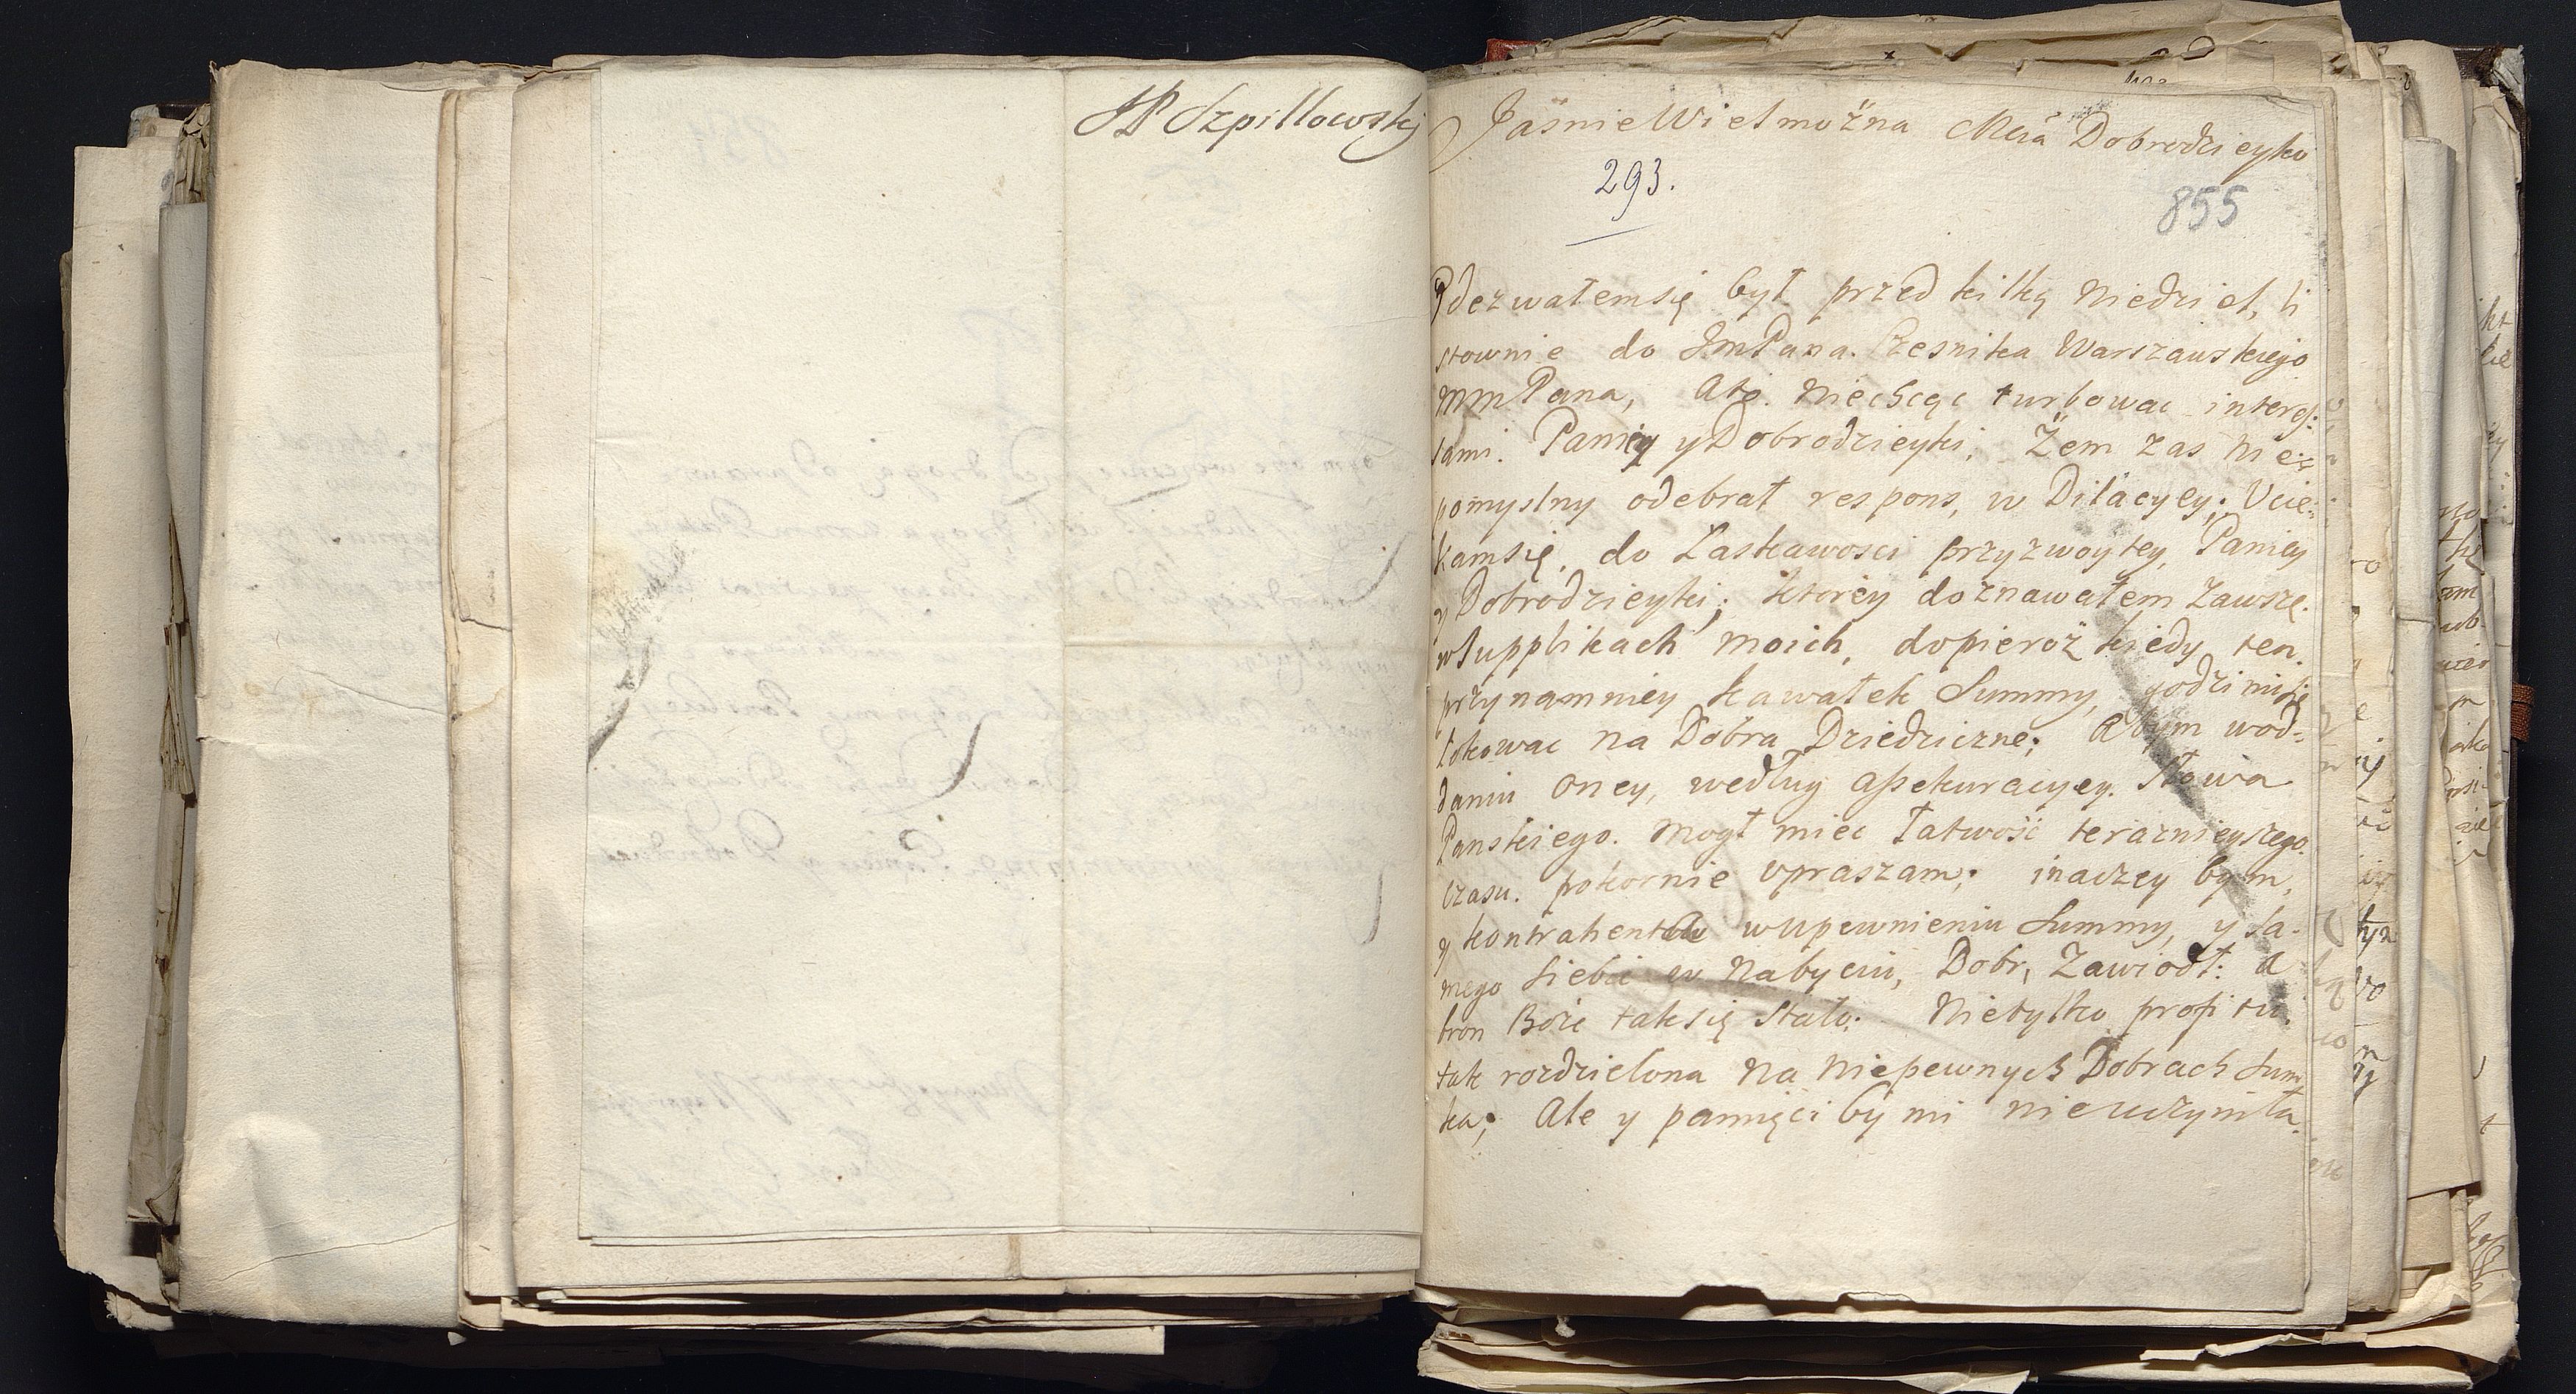 JP Szpillowskj
JaśnieWielmożna Mcia Dobrodzieyko
293.
855
Odezwałemsię był przed kilką Niedziel, li
stownie do JmPana. Czesnika Warszawskiego
MmPana, Ato. Niechcąc turbowac interes:
sami. Paniey yDobrodzieyki; Żem zas Nie
pomyslny odebrał respons, w Dilacyey; Ucie:
kamsię, do Łaskawosci przyzwoytey, Paniey
y Dobrodzieyki; ktorey doznawałem zawsze.
wSupplikach moich, dopieroż kiedy ten.
przynamniey kawałek Summy, godzi misię
lokowac na Dobra Dziedziczne; Abym wod:
daniu oney, według assekuracyey. Słowa
Panskiego. Mogł miec Łatwość teraznieyszego.
czasu. pokornie vpraszam; inaczey bym,
y kontrahentow wupewnieniu Summy, y sa-
mego siebie w Nabyciu, Dobr, Zawiodł: A
bron Boże taksię Stało; Nietylko profitu.
tak rozdzielona Na Niepewnych Dobrach Sum
ka; Ale y pamięci by mi nieuczyniła.